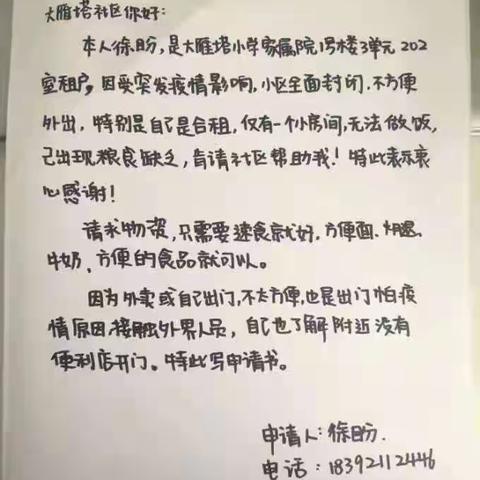 大雁塔社区你好:
本人徐盼,是大雁塔小学家属院1号楼3单元202
室租户,因受突发疫情影响,小区全面封闭.不方便
外出,特别是自己是合租,仅有一个小房间,无法做饭,
己出现粮食缺乏,肯请社区帮助我!特此表示衷
心感谢!
请求物资,只需要速食就好,方便面、火腿、
牛奶、方便的食品就可以。
因为外卖或自己出门,不太方便,也是出门怕疫
情原因,接触外界人员,自己也了解附近没有
便利店开门。特此写申请书。
申请人:徐盼.
电话:18392112446